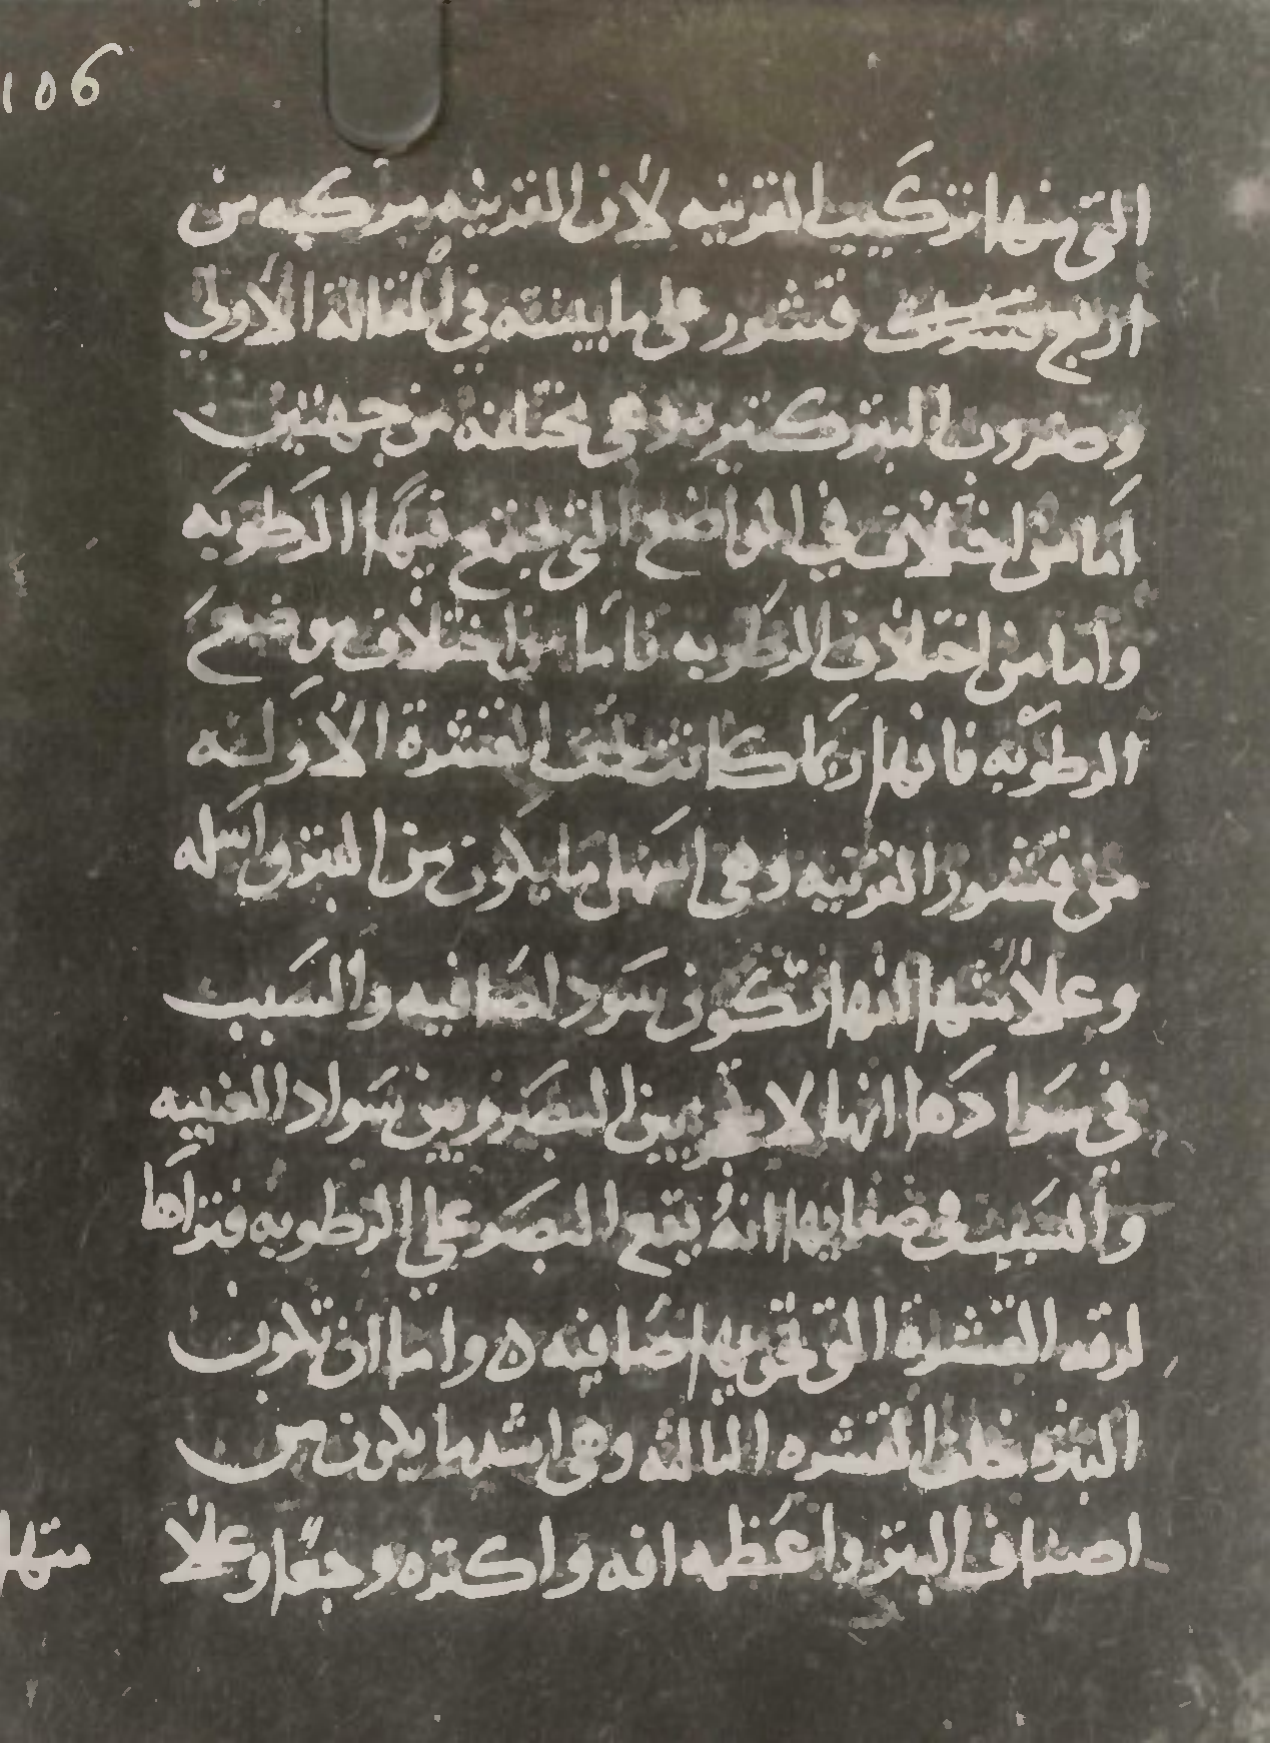 106
التي منها تركيب القرنيه لان القرنيه مركبه من
اربع قشور على ما بينته في المقالة الاولى
وضروب البثر كثيره وهي مختلفه من جهتين
اما من اختلاف في المواضع التي تجتمع فيها الرطوبه
واما من اختلاف الرطوبه فاما من اختلاف موضع
الرطوبه فانها ربما كانت تحت القشرة الاوله
من قشور القرنيه وهي اسهل ما يكون من البثر واسله
وعلامتها انها تكون سودا صافيه والسبب
في سوادها انها لا تحجز بين البصر وبين سواد العنبيه
والسبب في صفايها انه يقع البصر على الرطوبه فتراها
لرقه القشرة التي تحويها صافيه ه واما ان تكون
البثره خلف القشره الثالثه وهي اشد ما يكون من
اصناف البثر واعظمه افه واكثره وجعا وعلا
متها